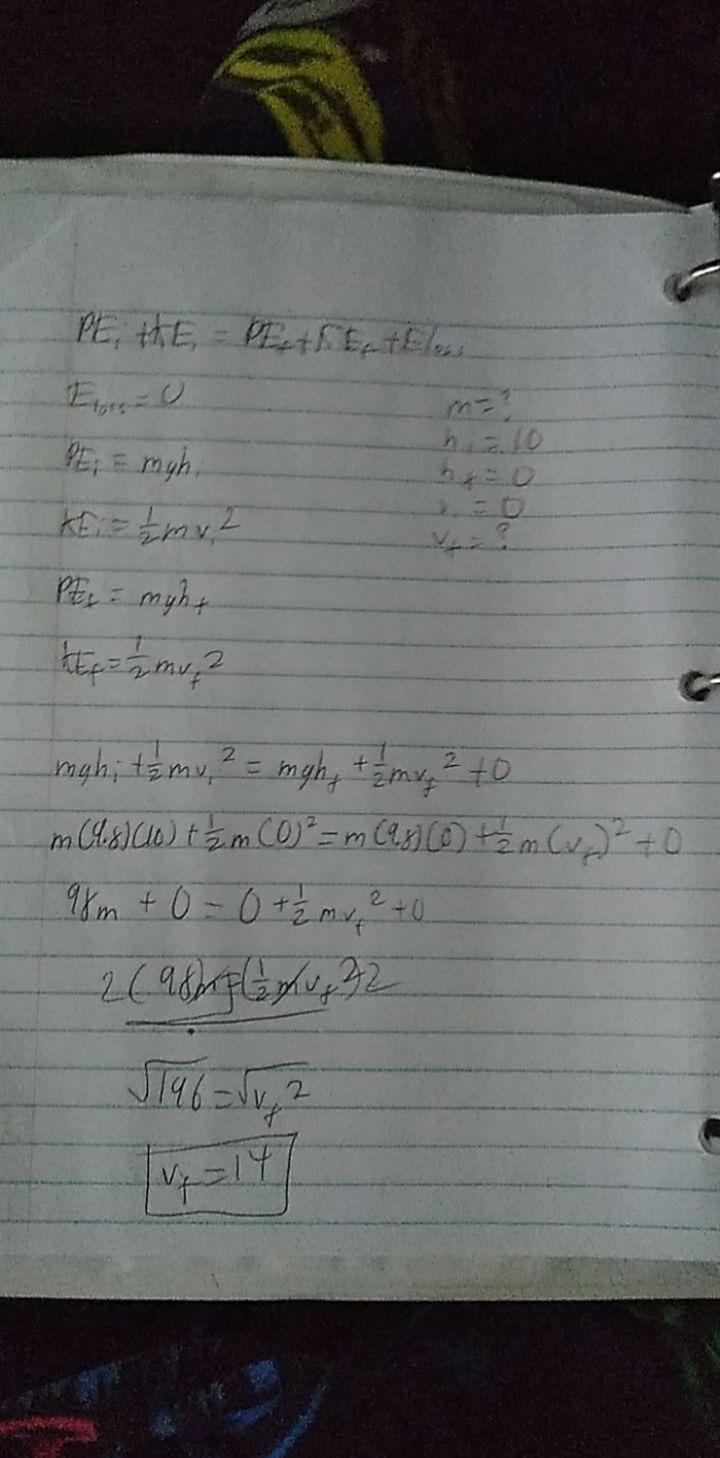 PEᵢ + KEᵢ = PE_f + KE_f + E loss
E loss = 0
m = ?
hᵢ = 10
PEᵢ = mghᵢ
h_f = 0
vᵢ = 0
KEᵢ = ½mvᵢ²
v_f = ?
PE_f = mgh_f
KE_f = ½mv_f²
mghᵢ + ½mvᵢ² = mgh_f + ½mv_f² + 0
m(9.8)(10) + ½m(0)² = m(9.8)(0) + ½m(v_f)² + 0
98m + 0 = 0 + ½mv_f² + 0
2(98)m = (½mv_f²)2
√196 = √v_f²
v_f = 14